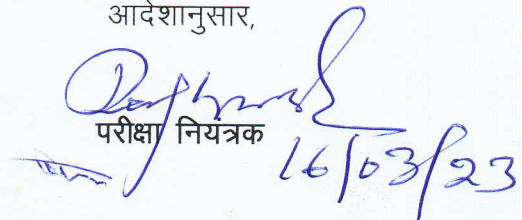 आदेशानुसार,
परीक्षा नियंत्रक
16/03/23